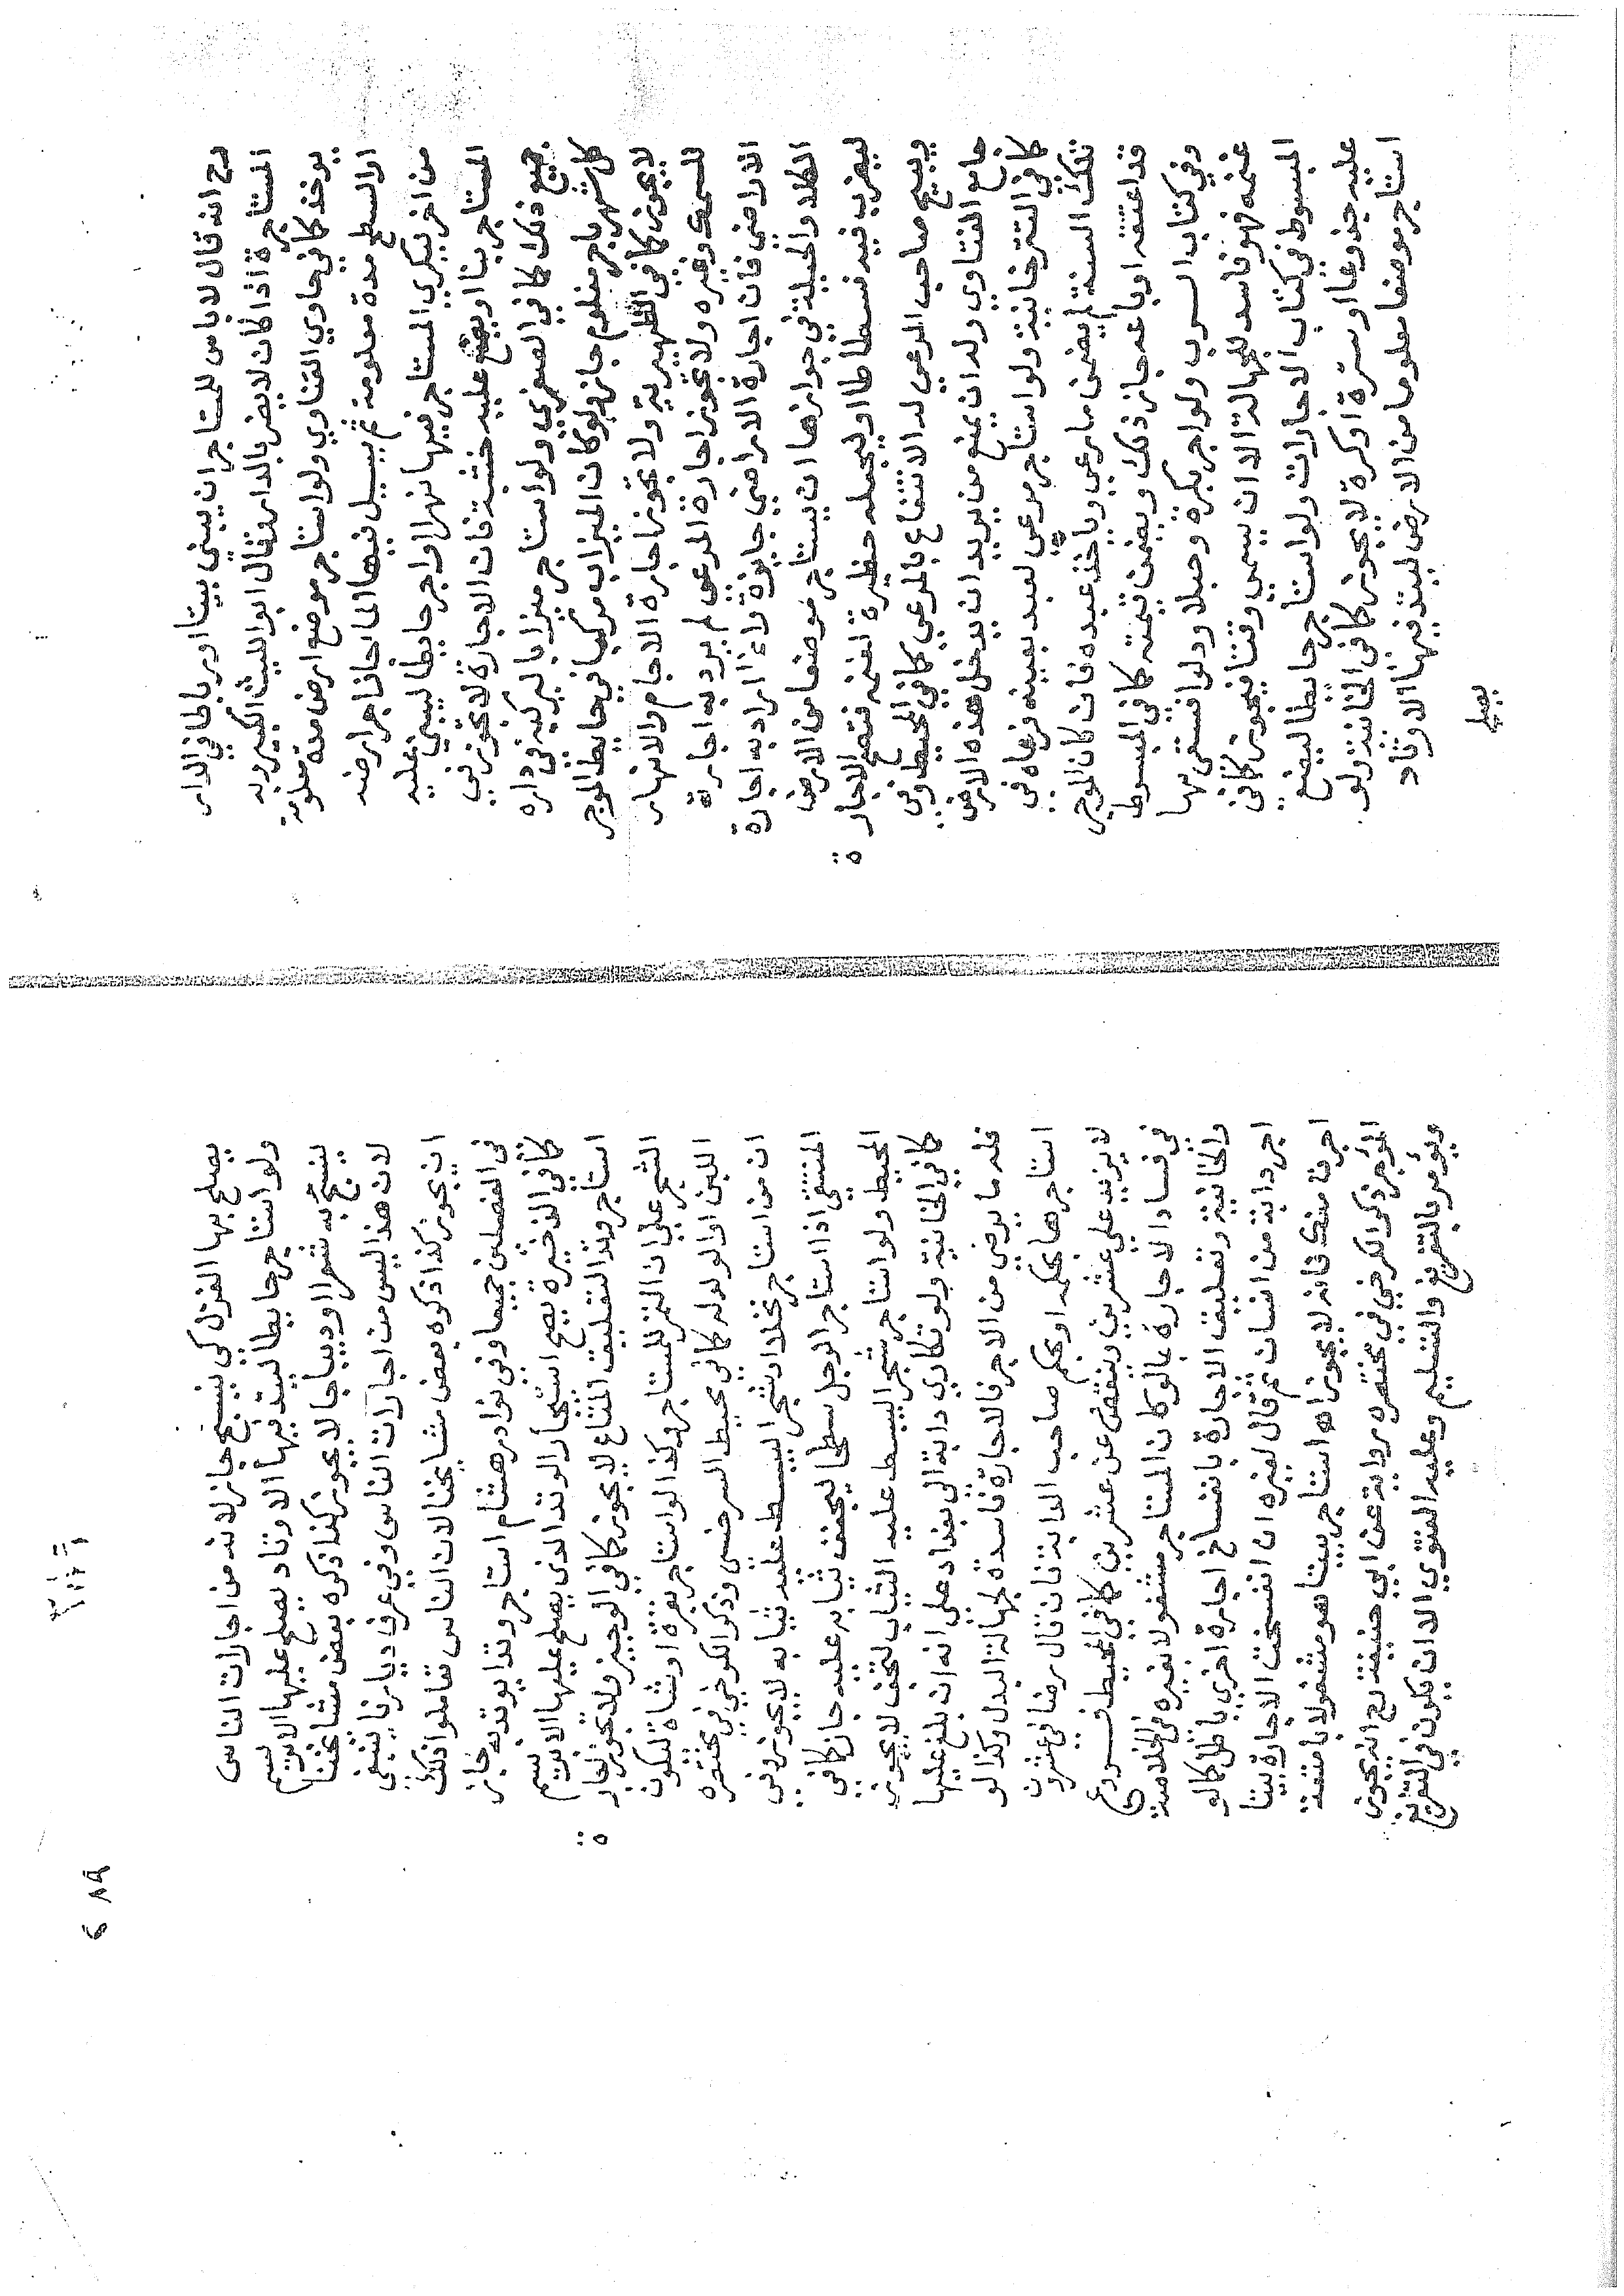 رح انه قال لا باس للمستاجر ان يبني بيتا او رباطا في الدار
المستاجرة اذا كان لا يضر بالدار وقال ابو الليث الكبير وبه
يوخذ كما في حاوي الفتاوي ولو استاجر موضع ارض مدة معلومة
او السطح مدة معلومة ثم يسيل فيها الما جاز اجر ارضه
من اخر ليكري المستاجر فيها نهرا او اجر حايطا ليبني عليه
المستاجر بنا او يضع عليه خشبة فان الاجارة لا تجوز في
جميع ذلك كما في الصغري ولو استاجر ميزابا ليركبه في داره
كل شهر باجر معلوم جاز ولو كان الميزاب مركبا في حايط الموجر
لا يجوز كما في الظهيرية ولا تجوز اجارة الاجام والانهار
للسمك وغيره ولا تجوز اجارة المرعي لم يرد به اجارة
الاراضي فان اجارة الاراضي جايزة وانما اراد به اجارة
الكلا والحيلة في جوازها ان يستاجر موضعا من الارض
ليضرب فيه فسطاطا او ليجعله حظيرة لغنمه فتصح الاجارة
ويبيح صاحب المرعي له الانتفاع بالمرعي كما في المحيط وفي
جامع الفتاوي وله ان يمنع من يريد ان يدخل هذه الارض
كما في التترخانية ولو استاجر مرعي لعبد بعينه فرعاه في
تلك السنة لم يضمن ما رعي وياخذ عبده فان كان الموجر
قد اعتقه او باعه جاز ذلك ويضمن قيمته كما في المبسوط
وفي كتاب الشرب ولو اجر بكرة وحبلا ودلوا يستقي بها
غنمه فهو فاسد للجهالة الا ان يسمي وقتا فيجوز كما في
المبسوط في كتاب الاجارات ولو استاجر حايطا ليضع
عليه جذوعا او سترة او كرة لا يجوز كما في الخانية ولو
استاجر موضعا معلوما من الارض ليتد فيها الاوتاد
يصلح
يصلح بها الغزل كي ينسج جاز لانه من اجارات الناس
ولو استاجر حايطا ليتد فيها الاوتاد يصلح عليها الابريسم
ينسج به شعرا او ديباجا لا يجوز كذا ذكره بعض مشايخنا
لان هذا ليس من اجارات الناس وفي عرف ديارنا ينبغي
ان يجوز كذا ذكره بعض مشايخنا لان الناس تعاملوا ذلك
في الفصلين جميعا وفي نوادر هشام استاجر وتدا يوتد به جاز
كما في الذخيرة يصح استيجار الوتد الذي يصلح عليها الابريسم
استاجر وتد التعليق المتاع لا يجوز كما في الوجيز ولا تجوز اجارة
الشجر علي ان الثمر للمستاجر وكذا لو استاجر بقرة او شاة ليكون
اللبن او الولد له كما في محيط السرخسي وذكر الكرخي في مختصره
ان من استاجر نخلا او شجرا ليبسط عليه ثيابه لا يجوز وفي
المنتقي اذا استاجر الرجل سطحا ليجفف ثيابه عليه جاز كما في
المحيط ولو استاجر شجرا ليبسط عليه الثياب لتجف لا يجوز
كما في الخانية ولو تكاري دابة الي بغداد علي انه ان بلغ عليها
فله ما يرضي من الاجر فالاجارة فاسدة لجهالة البدل وكذا لو
استاجرها بحكمه او بحكم صاحب الدابة فان قال رضائي عشرون
لا يزيد علي عشرين وينقص عن عشرين كما في المحيط
في فساد الاجارة بما لو كان المستاجر مشغولا بغيره في الخلاصة
والخانية وتعليق الاجارة بانفساخ اجارة اخري باطل كما لو
اجر دابة من انسان ثم قال لغيره ان انفسخت الاجارة بيننا
اجرتها منك فانه لا يجوز اه استاجر بيتا هو مشغول بامتعة
المؤجر ذكر الكرخي في مختصره رواية عن ابي حنيفة رح انه يجوز
ويؤمر بالتفريغ والتسليم وعليه الفتوي الا ان يكون في التفريغ
٨٩